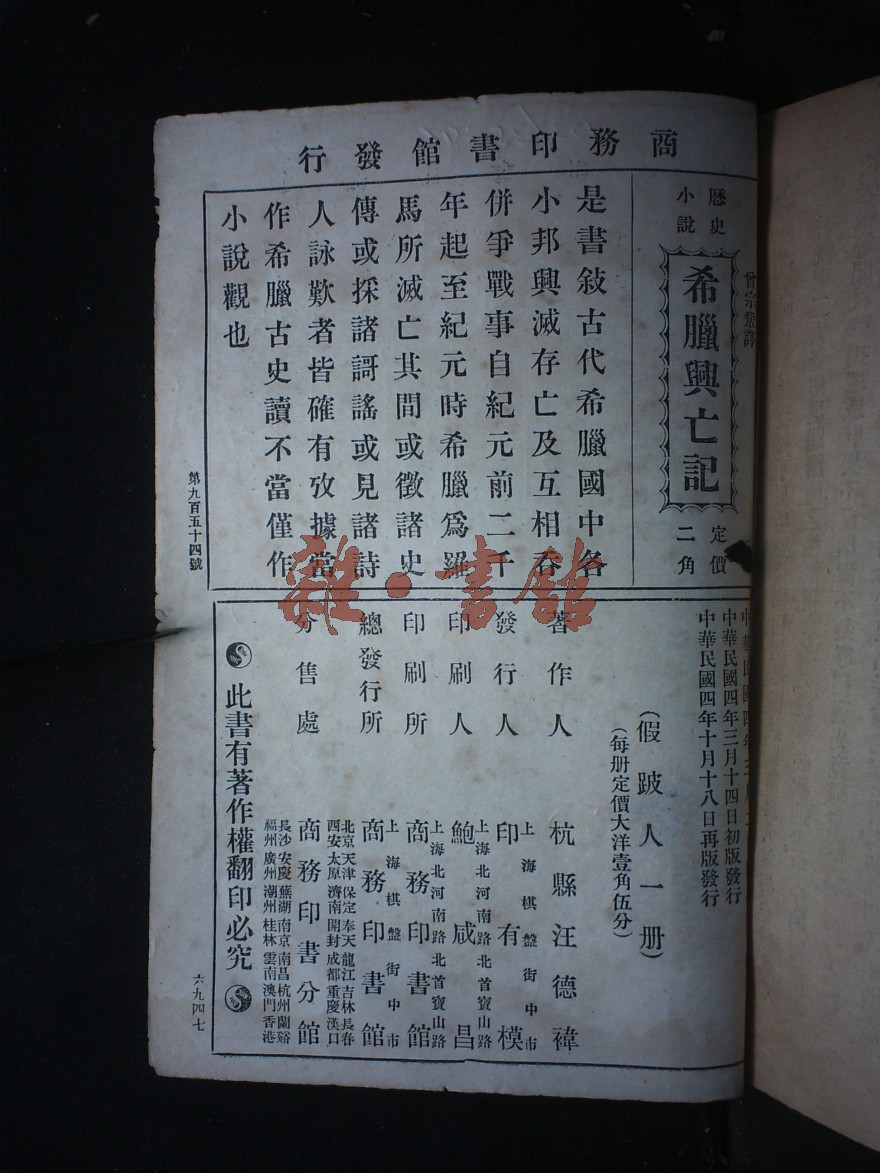 商務印書館發行
歷史
小說
希臘興亡記
定價
二角
是書敍古代希臘國中各
小邦興滅存亡及互相吞
併爭戰事自紀元前二千
年起至紀元時希臘爲羅
馬所滅亡其間或徵諸史
傳或採諸謌謠或見諸詩
人詠歎者皆確有攷據當
作希臘古史讀不當僅作
小說觀也
第九百五十四號
中華民國四年三月十四日初版發行
中華民國四年十月十八日再版發行
(假跛人一册)
(每册定價大洋壹角伍分)
著作人 杭縣汪德禕
發行人 上海棋盤街中市 印有模
印刷人 上海北河南路北首寶山路 鮑咸昌
印刷所 上海北河南路北首寶山路 商務印書館
總發行所 上海棋盤街中市 商務印書館
分售處 北京天津保定奉天龍江吉林長春
西安太原濟南開封成都重慶漢口
商務印書分館
長沙安慶蕪湖南京南昌杭州蘭谿
福州廣州潮州桂林雲南澳門香港
此書有著作權翻印必究
六九四七
雜·書館